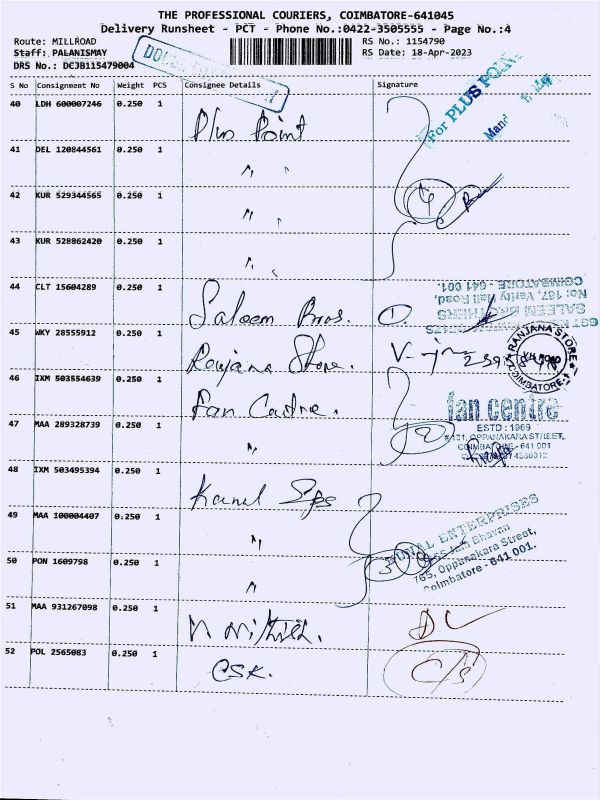 THE PROFESSIONAL COURIERS, COIMBATORE-641045
Delivery Runsheet - PCT - Phone No.:0422-3505555 - Page No.:4
Route: MILLROAD RS No.: 1154790
Staff: PALANISMAY RS Date: 18-Apr-2023
DRS No.: DCJB115479004
S No Consignment No Weight PCS Consignee Details Signature
For PLUS POINT
40 LDH 600007246 0.250 1
Plus Point
41 DEL 120844561 0.250 1
" "
42 KUR 529344565 0.250 1
" " 4
43 KUR 528862420 0.250 1
" "
44 CLT 15604289 0.250 1
Saleem Bros. 1
SALEEM BROTHERS
No: 167, Variety Hall Road,
COIMBATORE - 641 001.
45 WKY 28555912 0.250 1
Ranjana Store
RANJANA STORE
COIMBATORE-1
46 IXM 503554639 0.250 1
Fan Centre.
fan centre
ESTD : 1969
OPPANAKARA STREET,
COIMBATORE - 641 001
47 MAA 289328739 0.250 1
" 2
48 IXM 503495394 0.250 1
49 MAA 100004407 0.250 1
"
ENTERPRISES
765, Oppanakara Street,
Coimbatore - 641 001.
50 PON 1609798 0.250 1
" 3
51 MAA 931267098 0.250 1
DL
52 POL 2565083 0.250 1
CSK. C/s